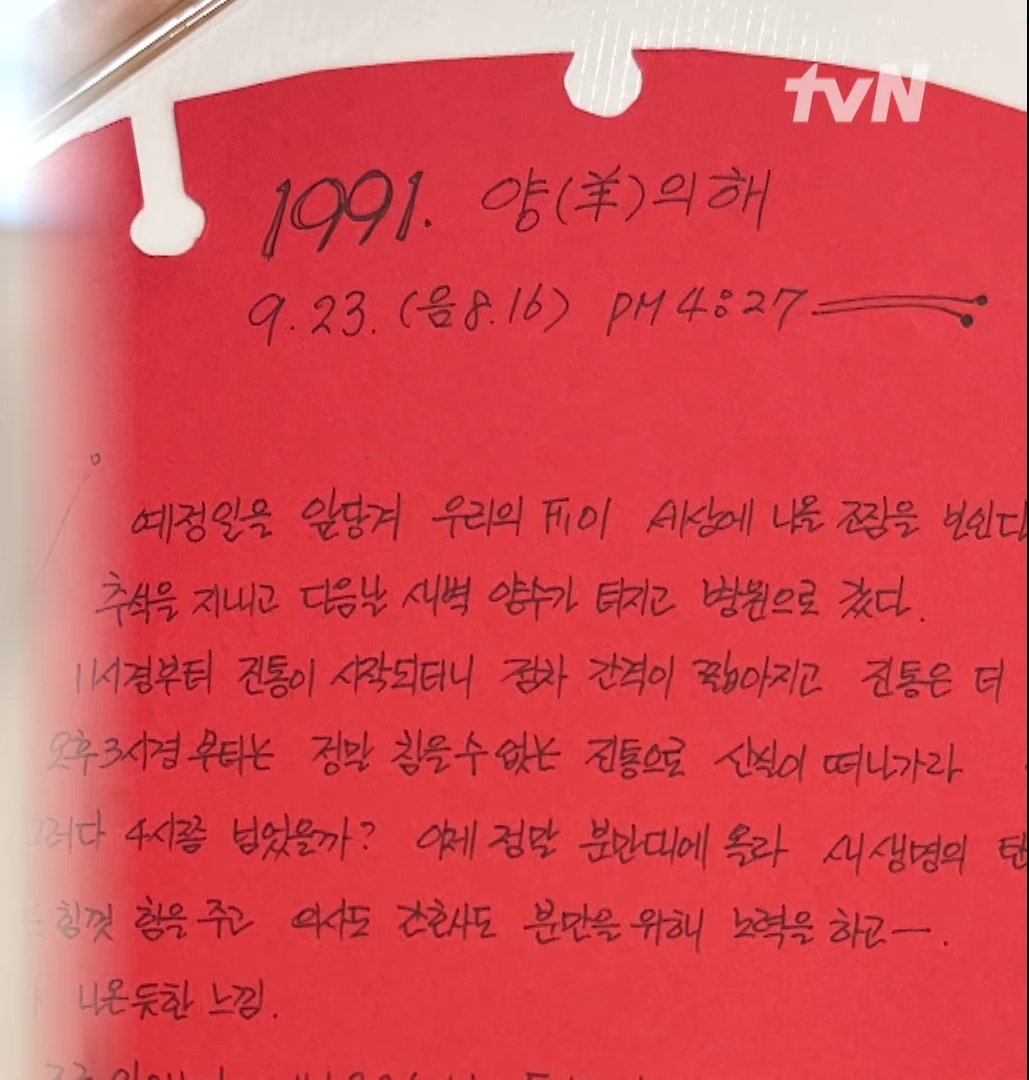 tvN
1991. 양(羊)의 해
9.23. (음8.16) PM 4:27
예정일을 앞당겨 우리의 표이 세상에 나올 조짐을 보인다
추석을 지내고 다음날 새벽 양수가 터지고 병원으로 갔다.
11시경부터 진통이 시작되더니 점차 간격이 짧아지고 진통은 더
오후3시경 부터는 정말 참을 수 없는 진통으로 산실이 떠나가라
그러다 4시쯤 넘었을까? 이제 정말 분만대에 올라 새 생명의 탄
힘껏 힘을 주고 의사도 간호사도 분만을 위해 노력을 하고ㅡ.
나온듯한 느낌.